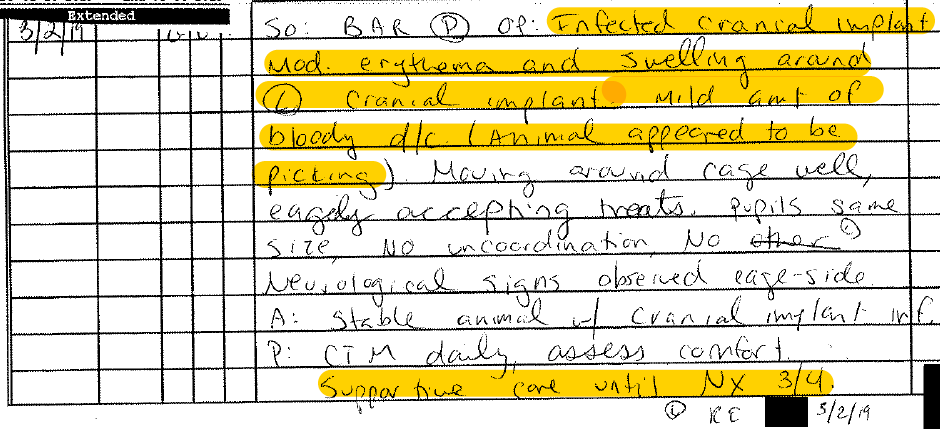 Extended
3/2/19 So: BAR Ⓟ Of: Infected cranial implant
Mod. erythema and swelling around
Ⓛ cranial implant. Mild amt of
bloody d/c. (Animal appeared to be
picking). Moving around cage well,
eagely accepting treats. pupils same
size, No uncoordination, No other
Neurological signs observed cage-side
A: Stable animal w/ cranial implant inf.
P: CTM daily, assess comfort.
Supportive care until NX 3/4.
RE 3/2/19